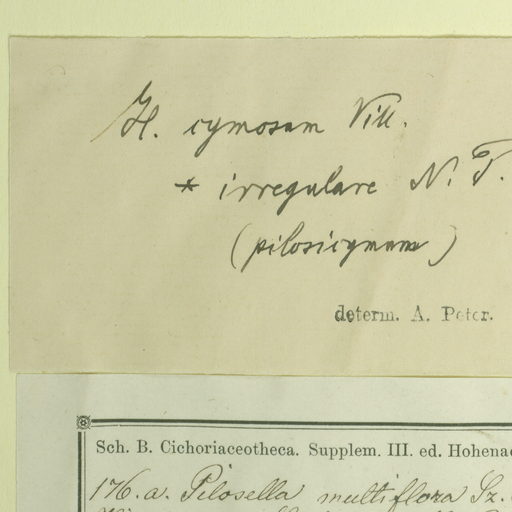 H. cymosum Vill.
* irregulare N. P.
(pilosicymum)
determ. A. Peter.
Sch. B. Cichoriaceotheca. Supplem. III. ed. Hohenac
176. a. Pilosella multiflora Sz.